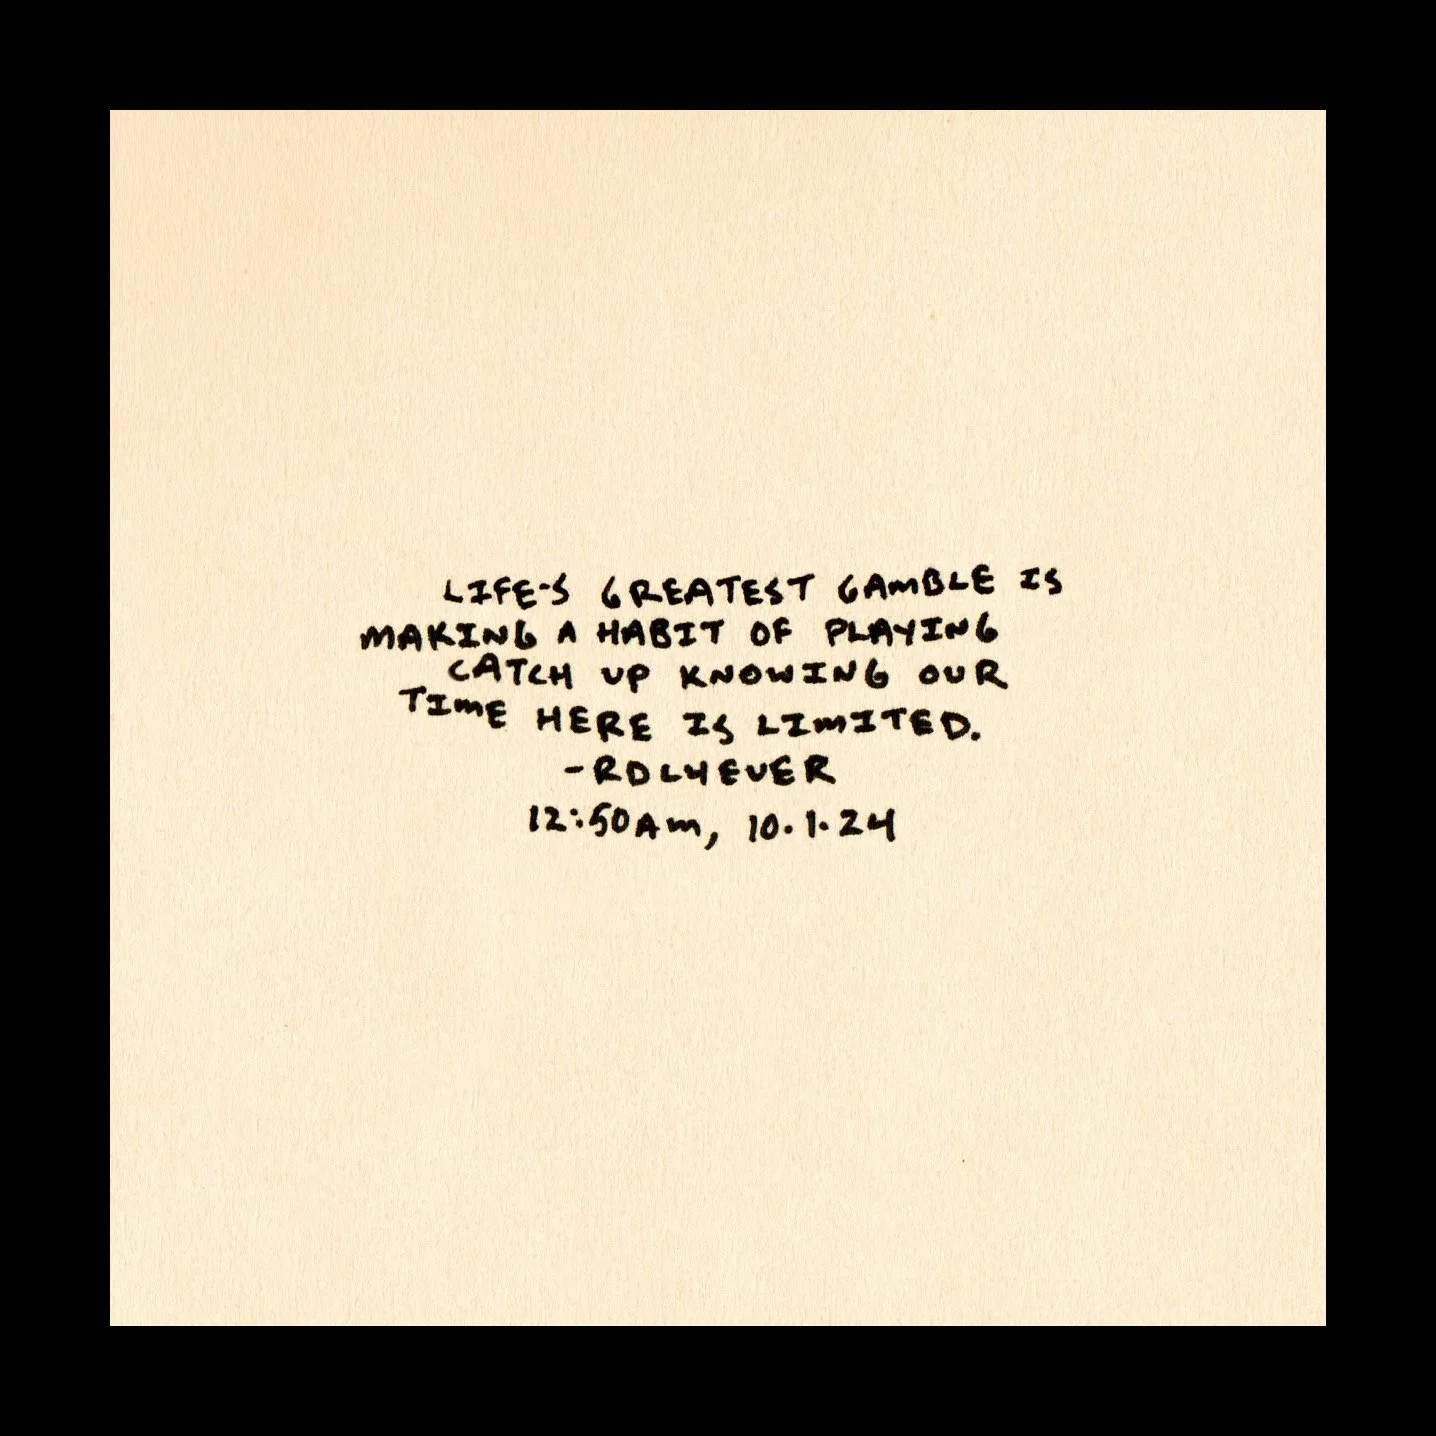 LIFE'S GREATEST GAMBLE IS
MAKING A HABIT OF PLAYING
CATCH UP KNOWING OUR
TIME HERE IS LIMITED.
-RDL4EVER
12:50AM, 10.1.24